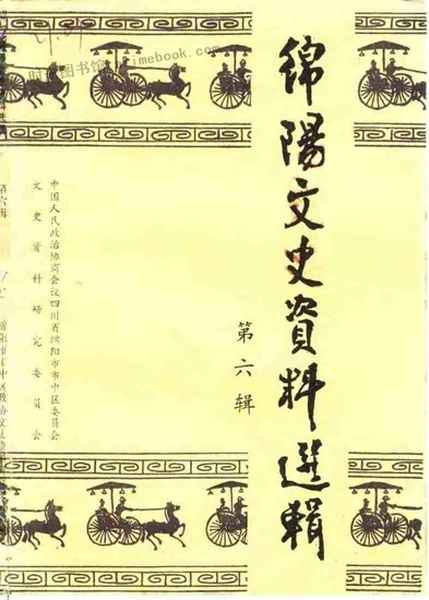 綿陽文史資料選輯
第六辑
中国人民政治协商会议四川省绵阳市市中区委员会
文史资料研究委员会